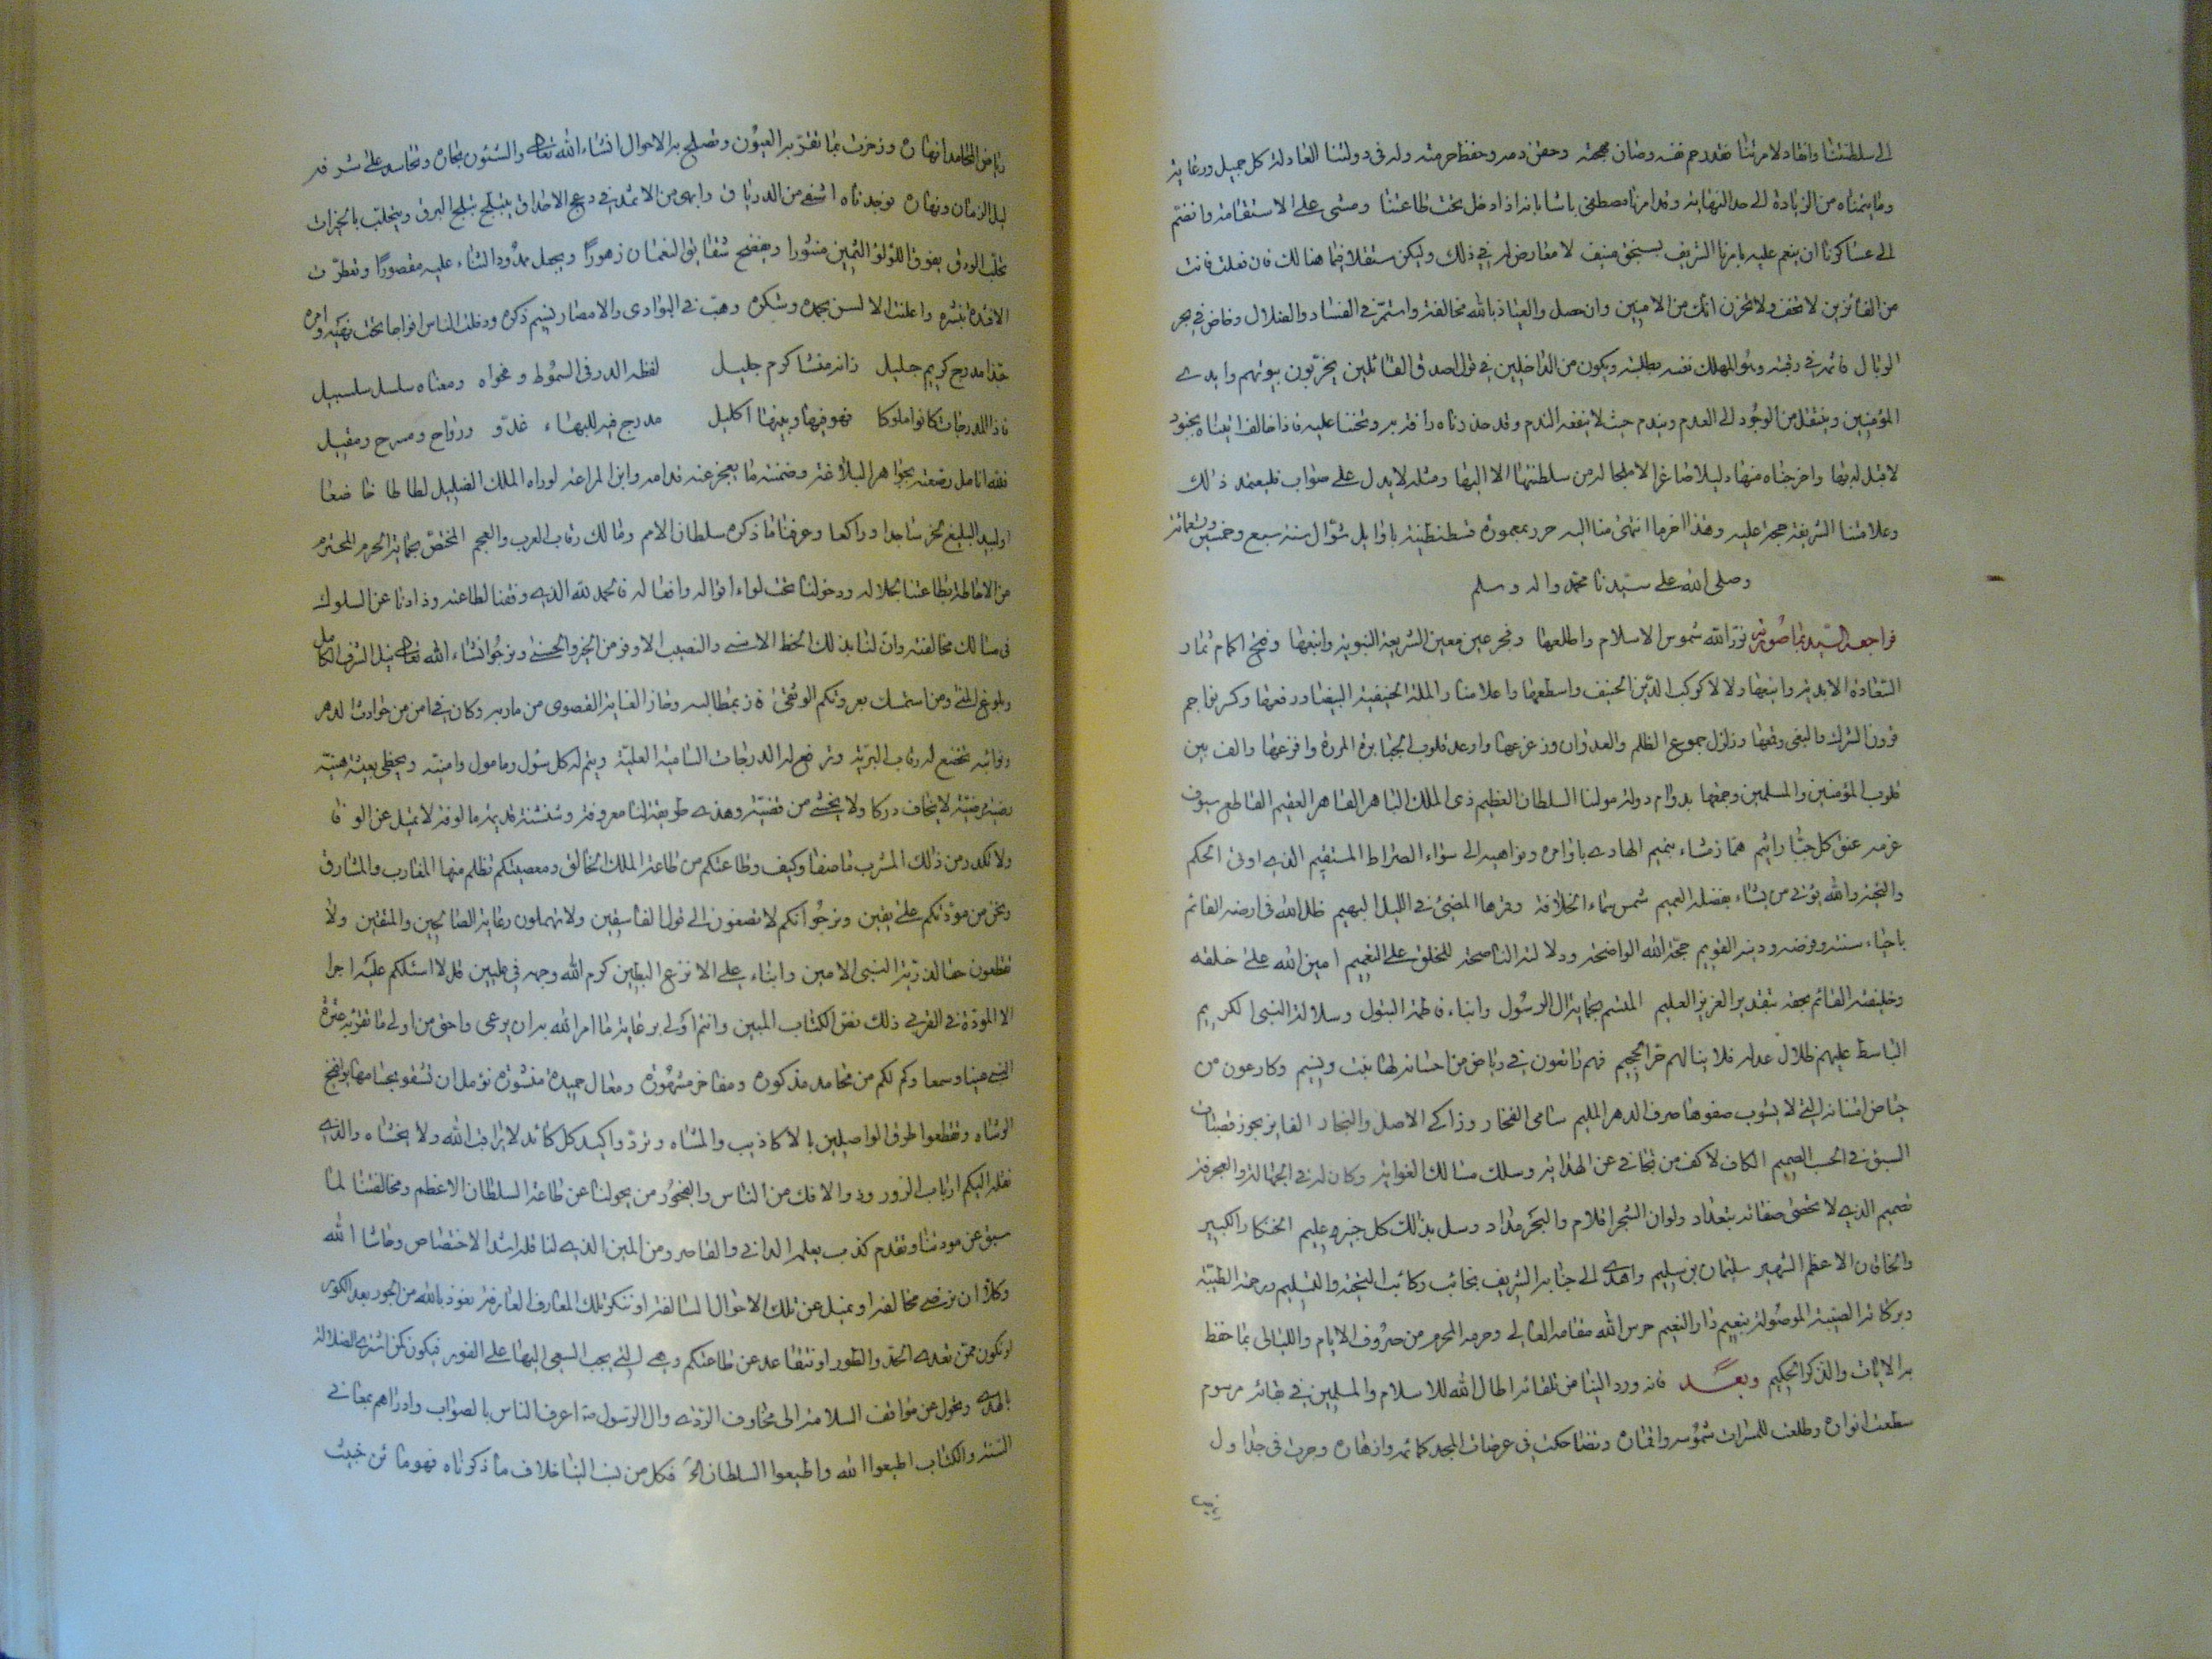 الى سلطنتنا وانقاد لامرتنا فقد رحم نفسه وصان مهجته وحقن دمه وحفظ حرمته وله فى دولتنا العادلة كل جميل ورعاية
وما يتمناه من الزيادة الى حد النهاية وقد امرنا مصطفى باشا بانه اذا دخل تحت طاعتنا ومشى على الاستقامة وانضم
الى عساكرنا ان ينعم عليه بامرنا الشريف بسنجق منيف لا معارض له في ذلك وليكن مستقلا فيما هنالك فان فعلت فانت
من الفائزين لا تخف ولا تحزن انك من الامنين وان حصل والعياذ بالله مخالفة واستمر في الفساد والضلال وخاض في بحر
الوبال فاثمه في رقبته وهو المهلك نفسه بطلبته ويكون من الداخلين في قول اصدق القائلين يخربون بيوتهم وايدى
المؤمنين وينتقل من الوجود الى العدم ويندم حيث لا ينفعه الندم وقد حذرناه رأفة به وتحننا عليه فاذا خالف اتيناه بجنود
لا قبل له بها واخرجناه منها ذليلا صاغرا لا ملجا له من سلطنتها الا اليها ومثله لا يدل على صواب فليعتمد ذلك
وعلامتنا الشريفة حجة عليه وهذا اخر ما انتهى منا اليه حرر بمعمورة قسطنطينية باوايل شوال سنة سبع وخمسين وتسعمائة
وصلى الله على سيدنا محمد واله وسلم
فراجعه السيد بما صورته نور الله شموس الاسلام واطلعها وفجر عين معين الشريعة النبوية وانبعها وفتح اكمام ثمار
السعادة الابدية واينعها ولالا كوكب الدين الحنيف واسطعها واعلا منار الملة الحنيفية البيضا ورفعها وكسر نواجم
قرون الشرك والبغى وقمعها وزلزل جموع الظلم والعدوان وزعزعها وارعد قلوب الجبابرة المردة وافزعها والف بين
قلوب المؤمنين والمسلمين وجمعها بدوام دولة مولنا السلطان العظيم ذى الملك الباهر القاهر العقيم القاطع بسيوف
عزمه عنق كل جبار اثيم هماز مشاء بنميم الهادى باوامره ونواهيه الى سواء الصراط المستقيم الذى اوتى الحكم
والنجدة والله يؤتى من يشاء بفضله العميم شمس سماء الخلافة وقمرها المضيئ في الليل البهيم ظل الله فى ارضه القائم
باحياء سنته وفرضه ودينه القويم حجة الله الواضحة ودلالته الناصحة للخلق على التعميم امين الله على خلقه
وخليفته القائم بحقه بتقدير العزيز العليم المتسم بحماية ال الرسول وابناء فاطمة البتول وسلالة النبى الكريم
الباسط عليهم ظلال عدله فلا ينالهم حر الجحيم فهم راتعون في رياض من احسانه لها نبت وسيم وكارعون من
حياض امتنانه التى لا يشوب صفوها صرف الدهر المليم سامى الفخار وزاكى الاصل والنجار الفايز بحوز قصبات
السبق في الحسب الصميم الكاف لاكف من تجافى عن الهداية وسلك مسالك الغواية وكان له في الجهالة والعجرفة
تصميم الذى لا تحصى صفاته بتعداد ولو ان الشجر اقلام والبحر مداد وسل بذلك كل خبير عليم الخنكار الكبير
والخاقان الاعظم الشهير سليمان بن سليم واهدى الى جنابه الشريف نجائب ركائب التحية والتسليم ورحمة الطيبة
وبركاته الصيبة الموصولة بنعيم دار النعيم حرس الله مقامه العالى وحرمه المحرم من صروف الايام والليالى بما حفظ
به الايات والذكر الحكيم وبعد فانه ورد الينا من تلقائه اطال الله للاسلام والمسلمين في بقائه مرسوم
سطعت انواره وطلعت للمسرات شموسه واقماره وتضاحكت في عرصات المجد كمائمه وازهاره وجرت في جداول
رياض المحامد انهاره وزخرت بما تقر به العيون وتصلح به الاحوال انشاء الله تعالى والشئون بحاره وتحاسد على شرفه
ليل الزمان ونهاره فوجدناه اشفى من الدرياق وابهى من الاثمد في دعج الاحداق يتبلج تبلج البرق ويتحلب بالخيرات
تحلب الودق يفوق اللؤلؤ الثمين منثورا ويفضح شقايق النعمان زهورا ويجعل ممدود الثناء عليه مقصورا وتعطرت
الافئدة بنشره واعلنت الالسن بحمده وشكره وهب في البوادى والامصار نسيم ذكره ودخلت الناس افواجا تحت نهيه وامره
حبذا مدرج كريم جليل زانه منشا كرم جليل لفظه الدر فى السموط وفحواه ومعناه سلسل سلسبيل
فاذا المدرجات كانوا ملوكا فهو فيها وبينها اكليل مدرج فيه للبهاء غدو ورواح ومسرح ومقيل
فلله انامل رصعته بجواهر البلاغة وضمنته ما يعجز عنه قدامه وابن المراغة لو راه الملك الضليل لطاطا خاضعا
او لبيد البليغ لخر ساجدا وراكعا وعرفنا ما ذكره سلطان الامم ومالك رقاب العرب والعجم المختص بحماية الحرم المحترم
من الاحاطة بطاعتنا بجلاله ودخولنا تحت لواء اقواله وافعاله فالحمد لله الذى وفقنا لطاعته وذادنا عن السلوك
فى مسالك مخالفته وان لنا بذلك الحظ الاسنى والنصيب الاوفر من الخير والحسنى ونرجو انشاء الله تعالى نيل الشرف الكامل
وبلوغ المنى ومن استمسك بعروتكم الوثقى فاز بمطالبه وحاز الغاية القصوى من مآربه وكان في امن من حوادث الدهر
ونوائبه تخضع له رقاب البرية وترفع له الدرجات السامية العلية ويتم له كل سؤل ومامول وامنية ويحظى بعيشة هنية
رضية مرضية لا يخاف دركا ولا يخشى من قضية وهذه طريقة لنا معروفة وشنشنة قديمة مالوفة لا تميل عن الوفا
ولا نكدر من ذلك المشرب ما صفا وكيف وطاعتكم من طاعة الملك الخالق ومعصيتكم تظلم منها المغارب والمشارق
ونحن من مودتكم على يقين ونرجو انكم لا تصغون الى قول الفاسقين ولا تهملون رعاية الصالحين والمتقين ولا
تقطعون حقا لذرية النبى الامين وابناء على الانزع البطين كرم الله وجهه في عليين قل لا اسئلكم عليه اجرا
الا المودة في القربى ذلك نص الكتاب المبين وانتم اولى برعاية ما امر الله به ان يرعى واحق من اولى ما تقربه عترة
النبى عينا وسمعا وكم لكم من محامد مذكورة ومفاخر مشهورة ومعال حميدة منشورة نؤمل ان تشفو بحسامها بواضح
الوشاه وتقطعوا طرق الواصلين بالاكاذيب والمشاه وترد واكيد كل كائد لا يراقب الله ولا يخشاه والذى
نقله اليكم ارباب الزور وذو الافك من الناس والفجور من تحولنا عن طاعة السلطان الاعظم ومخالفتنا لما
سبق عن مودتنا وتقدم كذب يعلمه الدانى والقاصر ومن المين الذى لنا قلة اشد الاختصاص وحاشا الله
وكلا ان نرضى مخالفة او نميل عن تلك الاحوال السالفة او ننكر تلك المعارف العارفة نعوذ بالله من الحور بعد الكور
او نكون ممن تعدى الحد والطور او نتقاعد عن طاعتكم وهى التى يجب السعى اليها على الفور فيكون كمن اشترى الضلالة
بالهدى وتحول عن مواقف السلامة الى مخاوف الردى وال الرسول صم اعرف الناس بالصواب وادراهم بمعانى
السنة والكتاب اطيعوا الله واطيعوا السلطان الخ فكل من نسب الينا خلاف ما ذكرناه فهو مائن خبيث